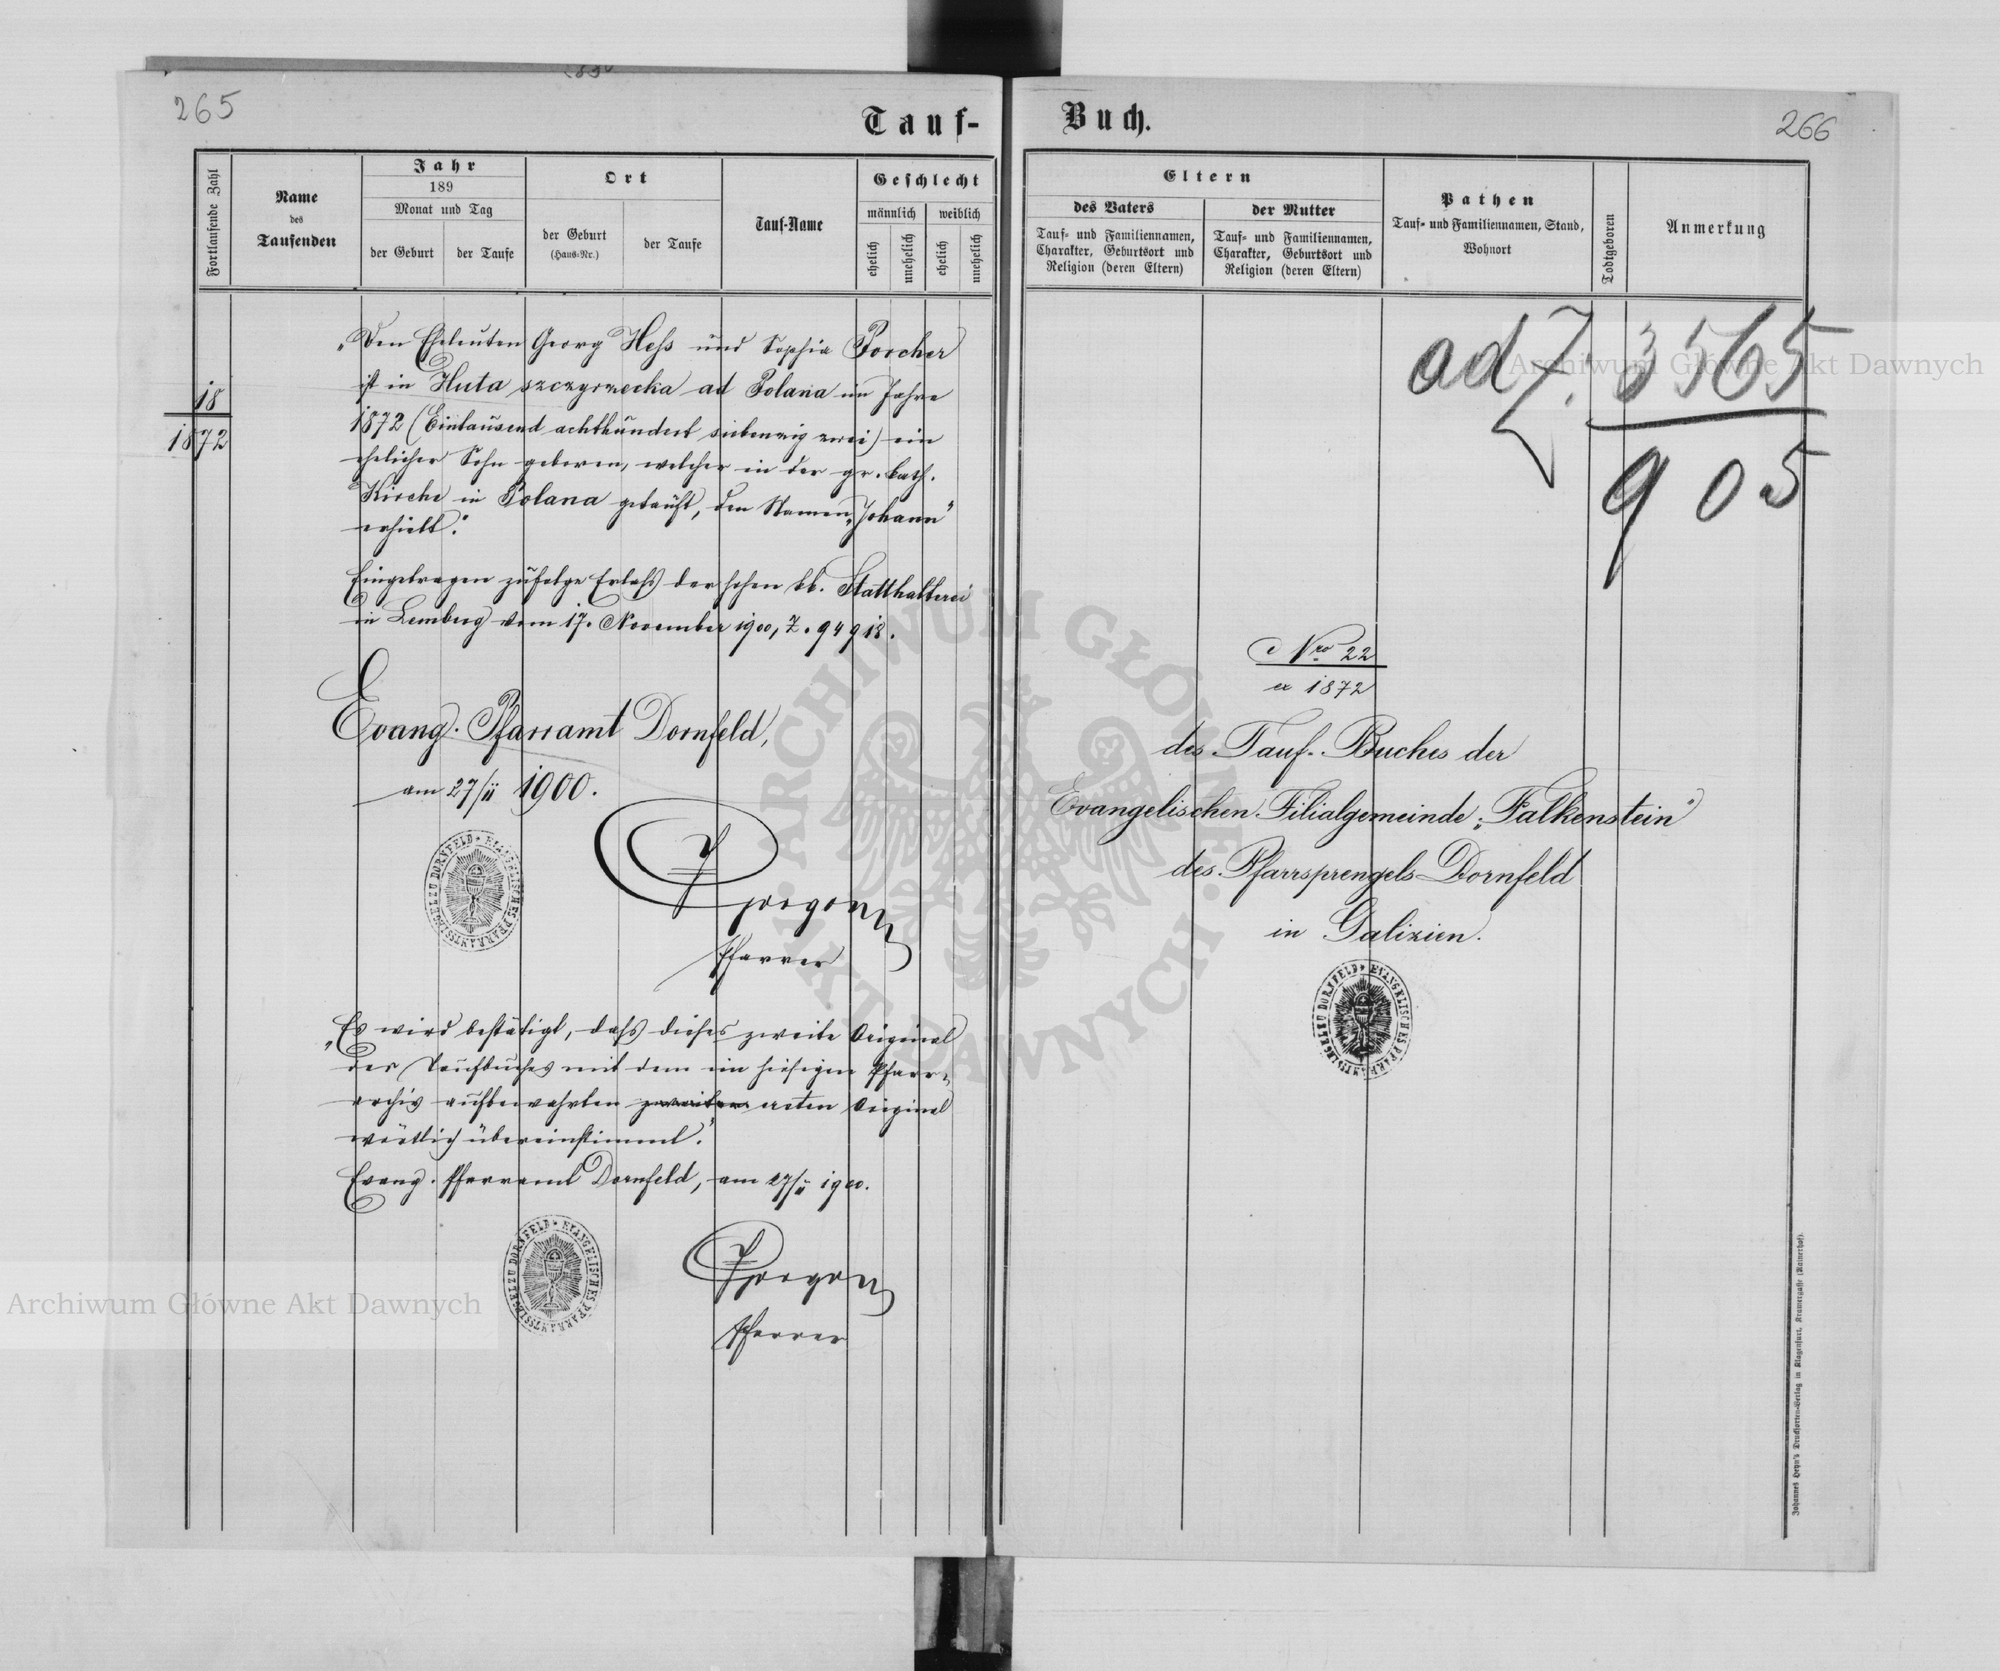 265
Tauf-
Fortlaufende Zahl
Name
des
Taufenden
Jahr
189
Monat und Tag
der Geburt
der Taufe
Ort
der Geburt
(Haus-Nr.)
der Taufe
Tauf-Name
Geschlecht
männlich
weiblich
ehelich
unehelich
ehelich
unehelich
18
1872
„Den Eheleuten Georg Heß und Sophia Porcher
ist in Huta szczyrzecka ad Polana im Jahre
1872 (Eintausend achthundert siebenzig zwei) ein
ehelicher Sohn geboren, welcher in der gr. kath.
Kirche in Polana getauft, den Namen „Johann"
erhielt."
Eingetragen zufolge Erlaß der hohen kk. Statthalterei
in Lemberg vom 17. November 1900, Z. 94918.
Evang. Pfarramt Dornfeld,
am 27/11 1900.
EVANGELISCHES PFARRAMTSSIEGEL ZU DORNFELD
Pfarrer
„Es wird bestätigt, daß dieses zweite Original
des Taufbuches mit dem im hiesigen Pfarr-
archiv aufbewahrten zweiten ersten Original
wörtlich übereinstimmt."
Evang. Pfarramt Dornfeld, am 27/11 1900.
EVANGELISCHES PFARRAMTSSIEGEL ZU DORNFELD
Pfarrer
Buch.
266
Eltern
des Vaters
Tauf- und Familiennamen,
Charakter, Geburtsort und
Religion (deren Eltern)
der Mutter
Tauf- und Familiennamen,
Charakter, Geburtsort und
Religion (deren Eltern)
Pathen
Tauf- und Familiennamen, Stand,
Wohnort
Todtgeboren
Anmerkung
ad 7. 3565
905
Nro 22
ex 1872
des Tauf-Buches der
Evangelischen Filialgemeinde „Falkenstein"
des Pfarrsprengels Dornfeld
in Galizien.
EVANGELISCHES PFARRAMTSSIEGEL ZU DORNFELD
Johannes Heyn's Drucksorten-Verlag in Klagenfurt, Kramergasse (Rainerhof).
Archiwum Główne Akt Dawnych
Archiwum Główne Akt Dawnych
ARCHIWUM GŁÓWNE AKT DAWNYCH